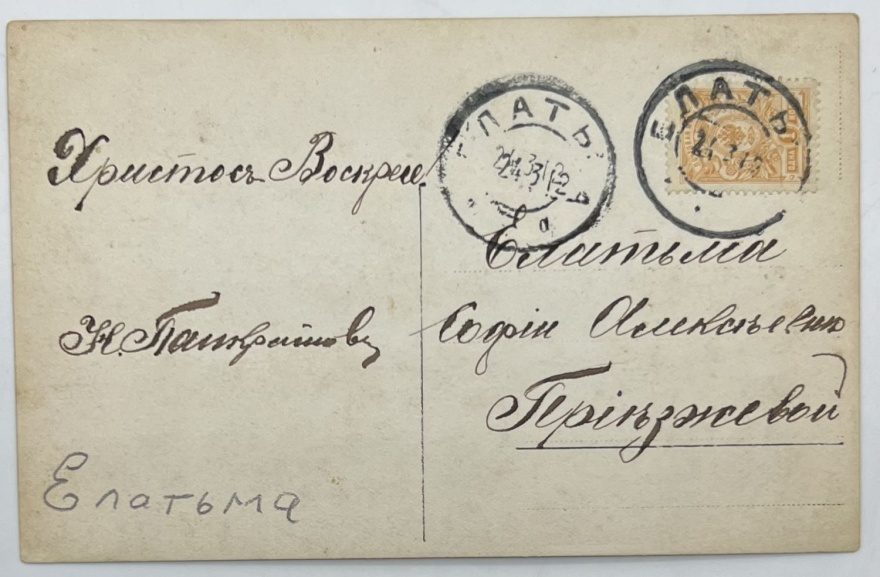 Христосъ Воскресе
Н. Панкратовъ
Елатьма
ЕЛАТЬМА
24 3 12
а
ЕЛАТЬ
24.3.12
Елатьма
Софіи Алексѣевнѣ
Пріѣзжевой